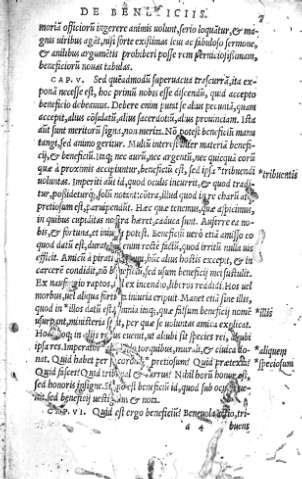 DE BENEFICIIS. 7
moriã officiorũ ingerere animis volunt, serio loquãtur, & ma-
gnis uiribus agãt, nisi forte existimas leui ac fabuloso sermone,
& anilibus argumẽtis prohiberi posse rem perniciosissimam,
beneficiorũ nouas tabulas.
CAP. V. Sed quẽadmodũ superuacua trãscurrã, ita ex-
ponã necesse est, hoc primũ nobis esse discendũ, quid accepto
beneficio debeamus. Debere enim putãt se alius pecuniã, quam
accepit, alius cõsulatũ, alius sacerdotiũ, alius prouinciam. Ista
aũt sunt meritorũ signa, non merita. Nõ potest beneficiũ manu
tangi, sed animo geritur. Multũ interest inter materiã benefi-
cij, & beneficiũ. itaq; nec aurũ, nec argentũ, nec quicquã eorũ
quæ à proximis accipiuntur, beneficiũ est, sed ipsa *tribuentis
uoluntas. Imperiti aũt id, quod oculis incurrit, & quod tradi-
tur, possideturq;, solũ
pretiosum est,
in quibus cupiditas nostra hæret, caduca sunt. Auferre ea no-
bis, & fortuna, et iniuria potest. Beneficiũ uerò etiã amisso eo
quod datũ est, durat. enim rectè factũ, quod irritũ nulla uis
efficit. Amicũ à piratis hũc alius hostis excepit, & in
carcerẽ condidit, nõ beneficiũ, sed usum beneficij mei sustulit.
Ex naufragio raptos, uel ex incendio, liberos reddidi. Hos uel
morbus, uel aliqua fortuita iniuria eripuit. Manet etiã sine illis,
quod in *illos datũ est. omnia itaq;, quæ falsum beneficij nomẽ
usurpant, ministeria sunt, per quæ se uoluntas amica explicat.
Hoc quoq; in alijs rebus euenit, ut alicubi sit species rei, alicubi
ipsa res. Imperator torquibus, murali, & ciuica do-
nat. Quid habet per se corona *pretiosum? Quid prætexta?
Quid fasces? Quid tribunal & currus? Nihil horũ honor est,
sed honoris insigne. Sic nõ est beneficiũ id, quod sub oculos ue-
nit, sed beneficij uestigium & nota.
CAP. VI. Quid est ergo beneficiũ? Beneuola actio, tri-
a 4 buens
*tribuentis
*illis
*aliquem
*speciosum